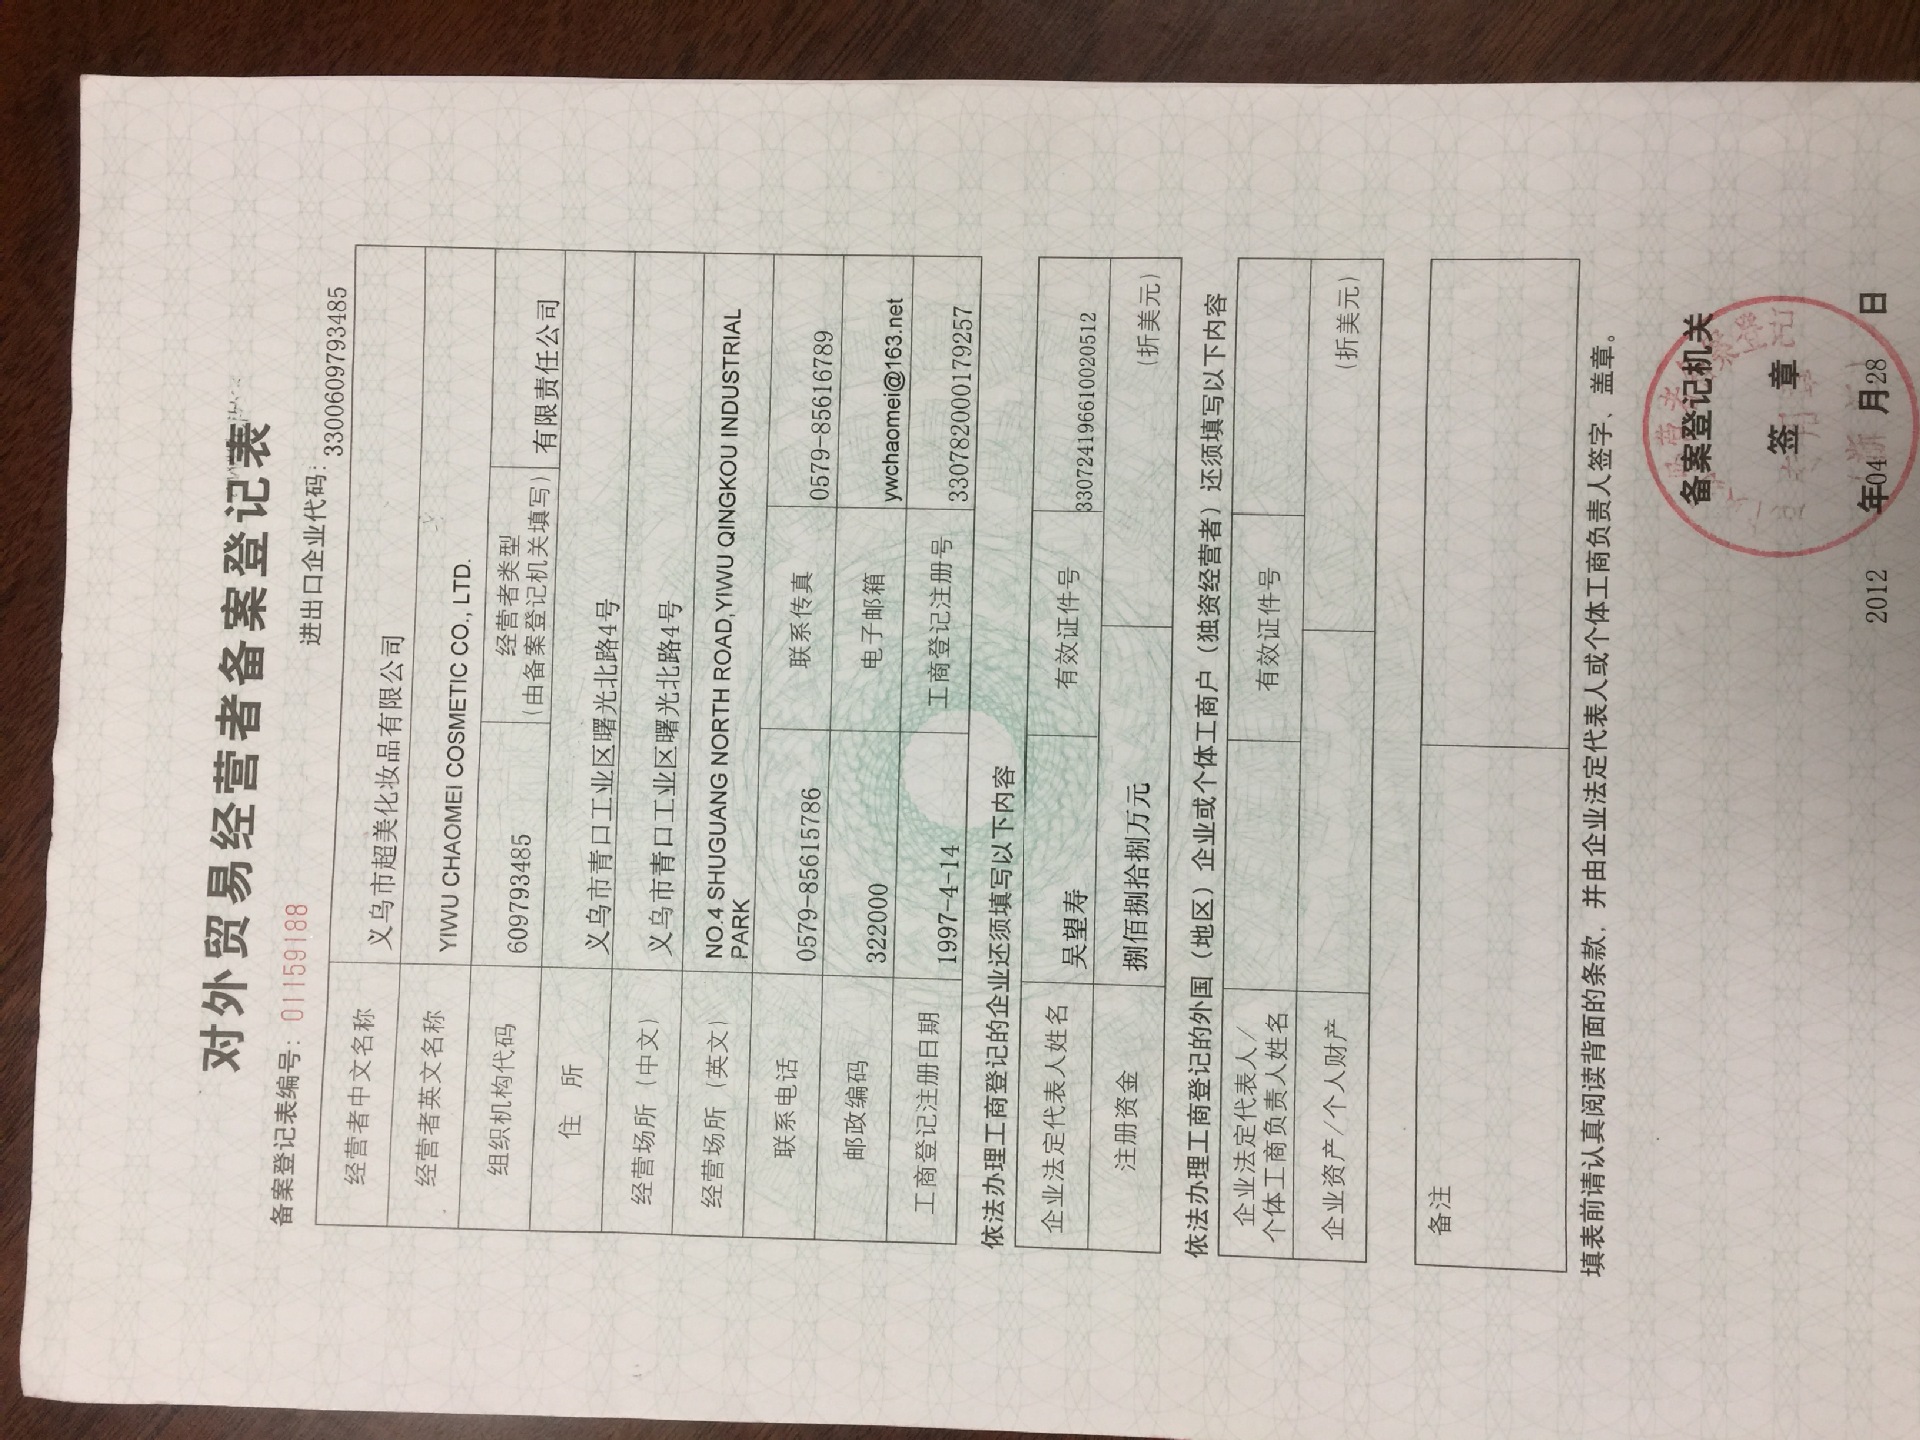 对外贸易经营者备案登记表
备案登记表编号：01159188
进出口企业代码：3300609793485
经营者中文名称 义乌市超美化妆品有限公司
经营者英文名称 YIWU CHAOMEI COSMETIC CO., LTD.
组织机构代码 609793485 经营者类型 有限责任公司
(由备案登记机关填写)
住 所 义乌市青口工业区曙光北路4号
经营场所（中文） 义乌市青口工业区曙光北路4号
经营场所（英文） NO.4 SHUGUANG NORTH ROAD,YIWU QINGKOU INDUSTRIAL
PARK
联系电话 0579-85615786 联系传真 0579-85616789
邮政编码 322000 电子邮箱 ywchaomei@163.net
工商登记注册日期 1997-4-14 工商登记注册号 330782000179257
依法办理工商登记的企业还须填写以下内容
企业法定代表人姓名 吴望寿 有效证件号 330724196610020512
注册资金 捌佰捌拾捌万元 （折美元）
依法办理工商登记的外国（地区）企业或个体工商户（独资经营者）还须填写以下内容
企业法定代表人/ 有效证件号
个体工商负责人姓名
企业资产/个人财产 （折美元）
备注
填表前请认真阅读背面的条款，并由企业法定代表人或个体工商负责人签字、盖章。
备案登记机关
签 章
2012 年04 月28 日